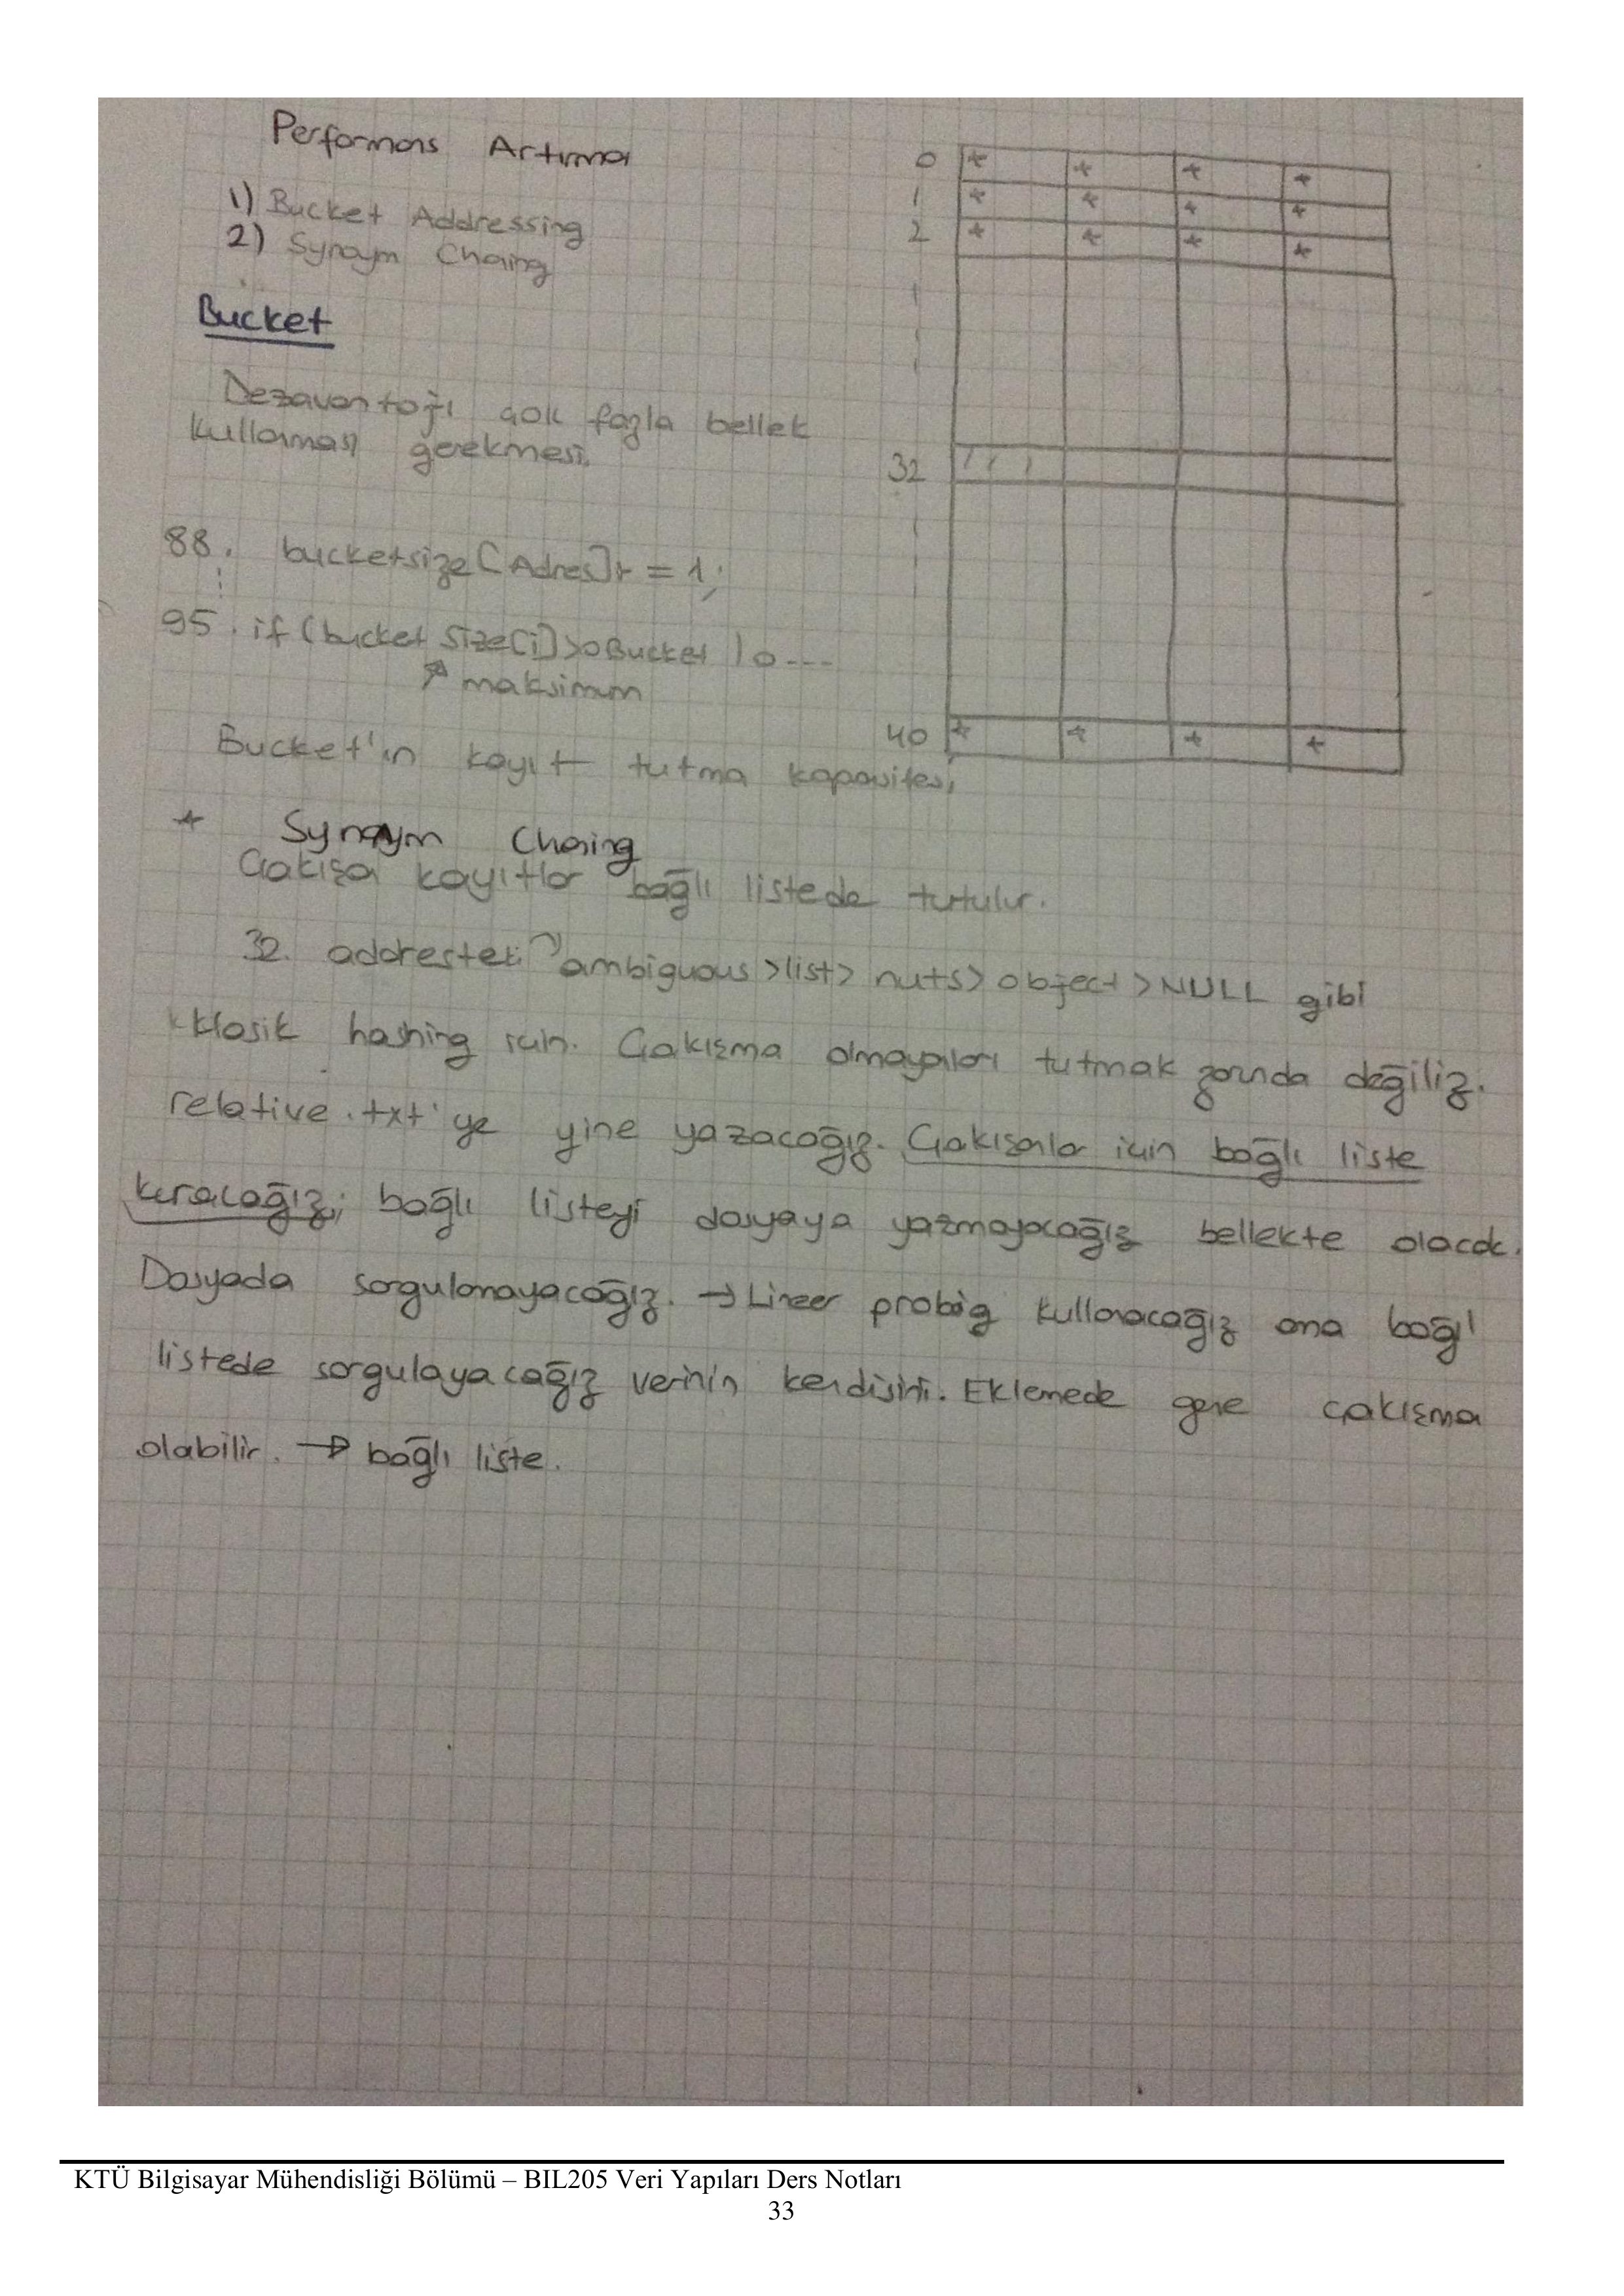 Performans Artırma
1) Bucket Addressing
2) Synoym Chaing
Bucket
Dezavantajı çok fazla bellek
kullanması gerekmesi.
88. bucketsize[Adres]+=1;
95. if(bucket Size[i]>oBucket)o---
maksimum
Bucket'ın kayıt tutma kapasitesi
* Synoym Chaing
Çakışan kayıtlar bağlı listede tutulur.
32. addresteki ambiguous>list> nuts> object>NULL gibi
Klasik hashing için. Çakışma olmayanları tutmak zorunda değiliz.
relative.txt'ye yine yazacağız. Çakışanlar için bağlı liste
kuracağız; bağlı listeyi dosyaya yazmayacağız bellekte olacak.
Dosyada sorgulamayacağız. → Lineer probing kullanacağız ama bağlı
listede sorgulayacağız verinin kendisini. Eklemede gene çakışma
olabilir. → bağlı liste.
0 * * * *
1 * * * *
2 * * * *
32
40 * * * *
KTÜ Bilgisayar Mühendisliği Bölümü – BIL205 Veri Yapıları Ders Notları
33